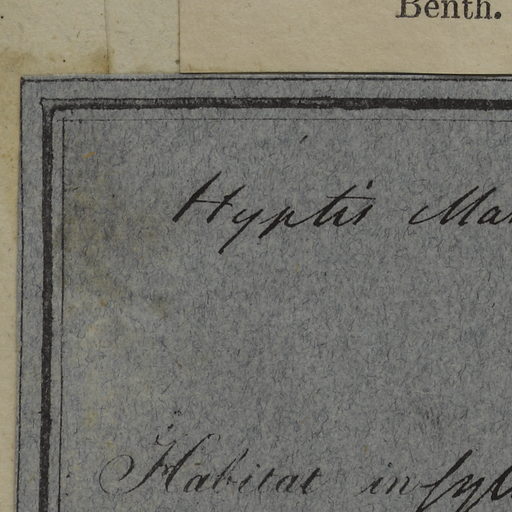 Benth.
Hyptis
Habitat in